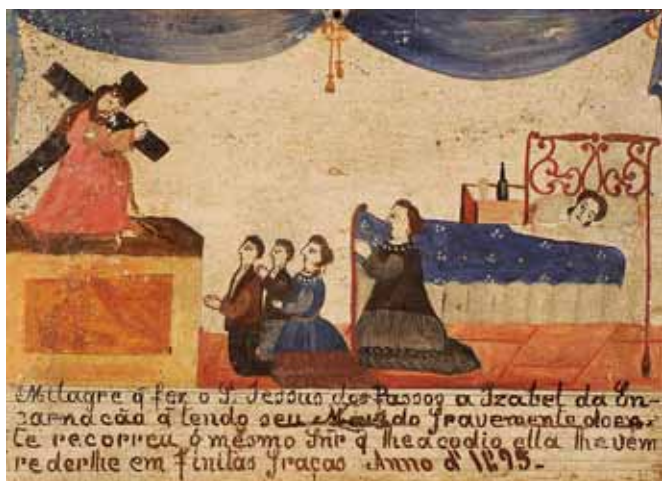 Milagre q̃ fez o S. Jessus dos Passos a Izabel da En-
carnacão q̃ tendo seu Marido Gravemente doen-
te recorreu ó mesmo Snr q̃ lhe acodio ella lhe vem
rederlhe em Finitas Graças Anno d'